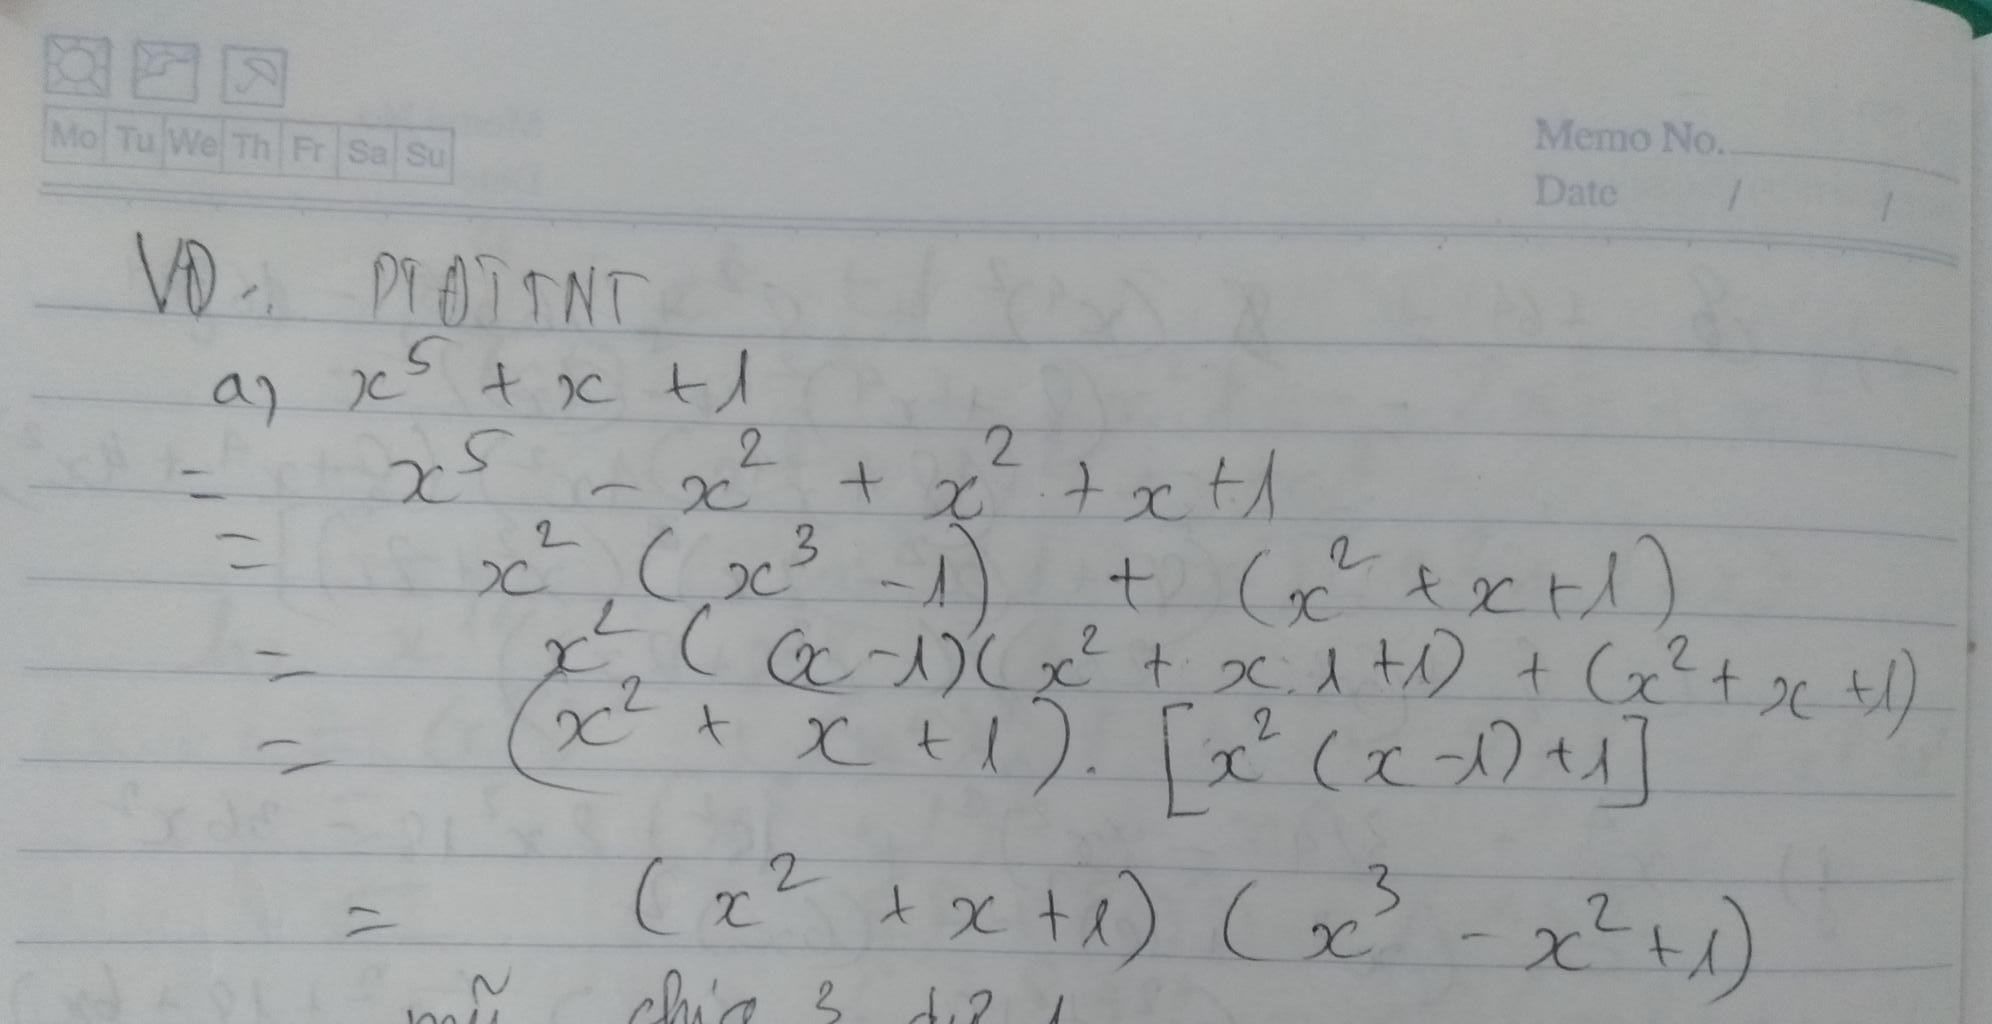 Mo Tu We Th Fr Sa Su
Memo No.
Date / /
VD: PTĐTTNT
a) x⁵ + x + 1
= x⁵ - x² + x² + x + 1
= x² (x³ - 1) + (x² + x + 1)
= x² ( (x - 1)(x² + x.1 + 1) + (x² + x + 1)
= (x² + x + 1). [x² (x - 1) + 1]
= (x² + x + 1) (x³ - x² + 1)
mũ chia 3 dư 1